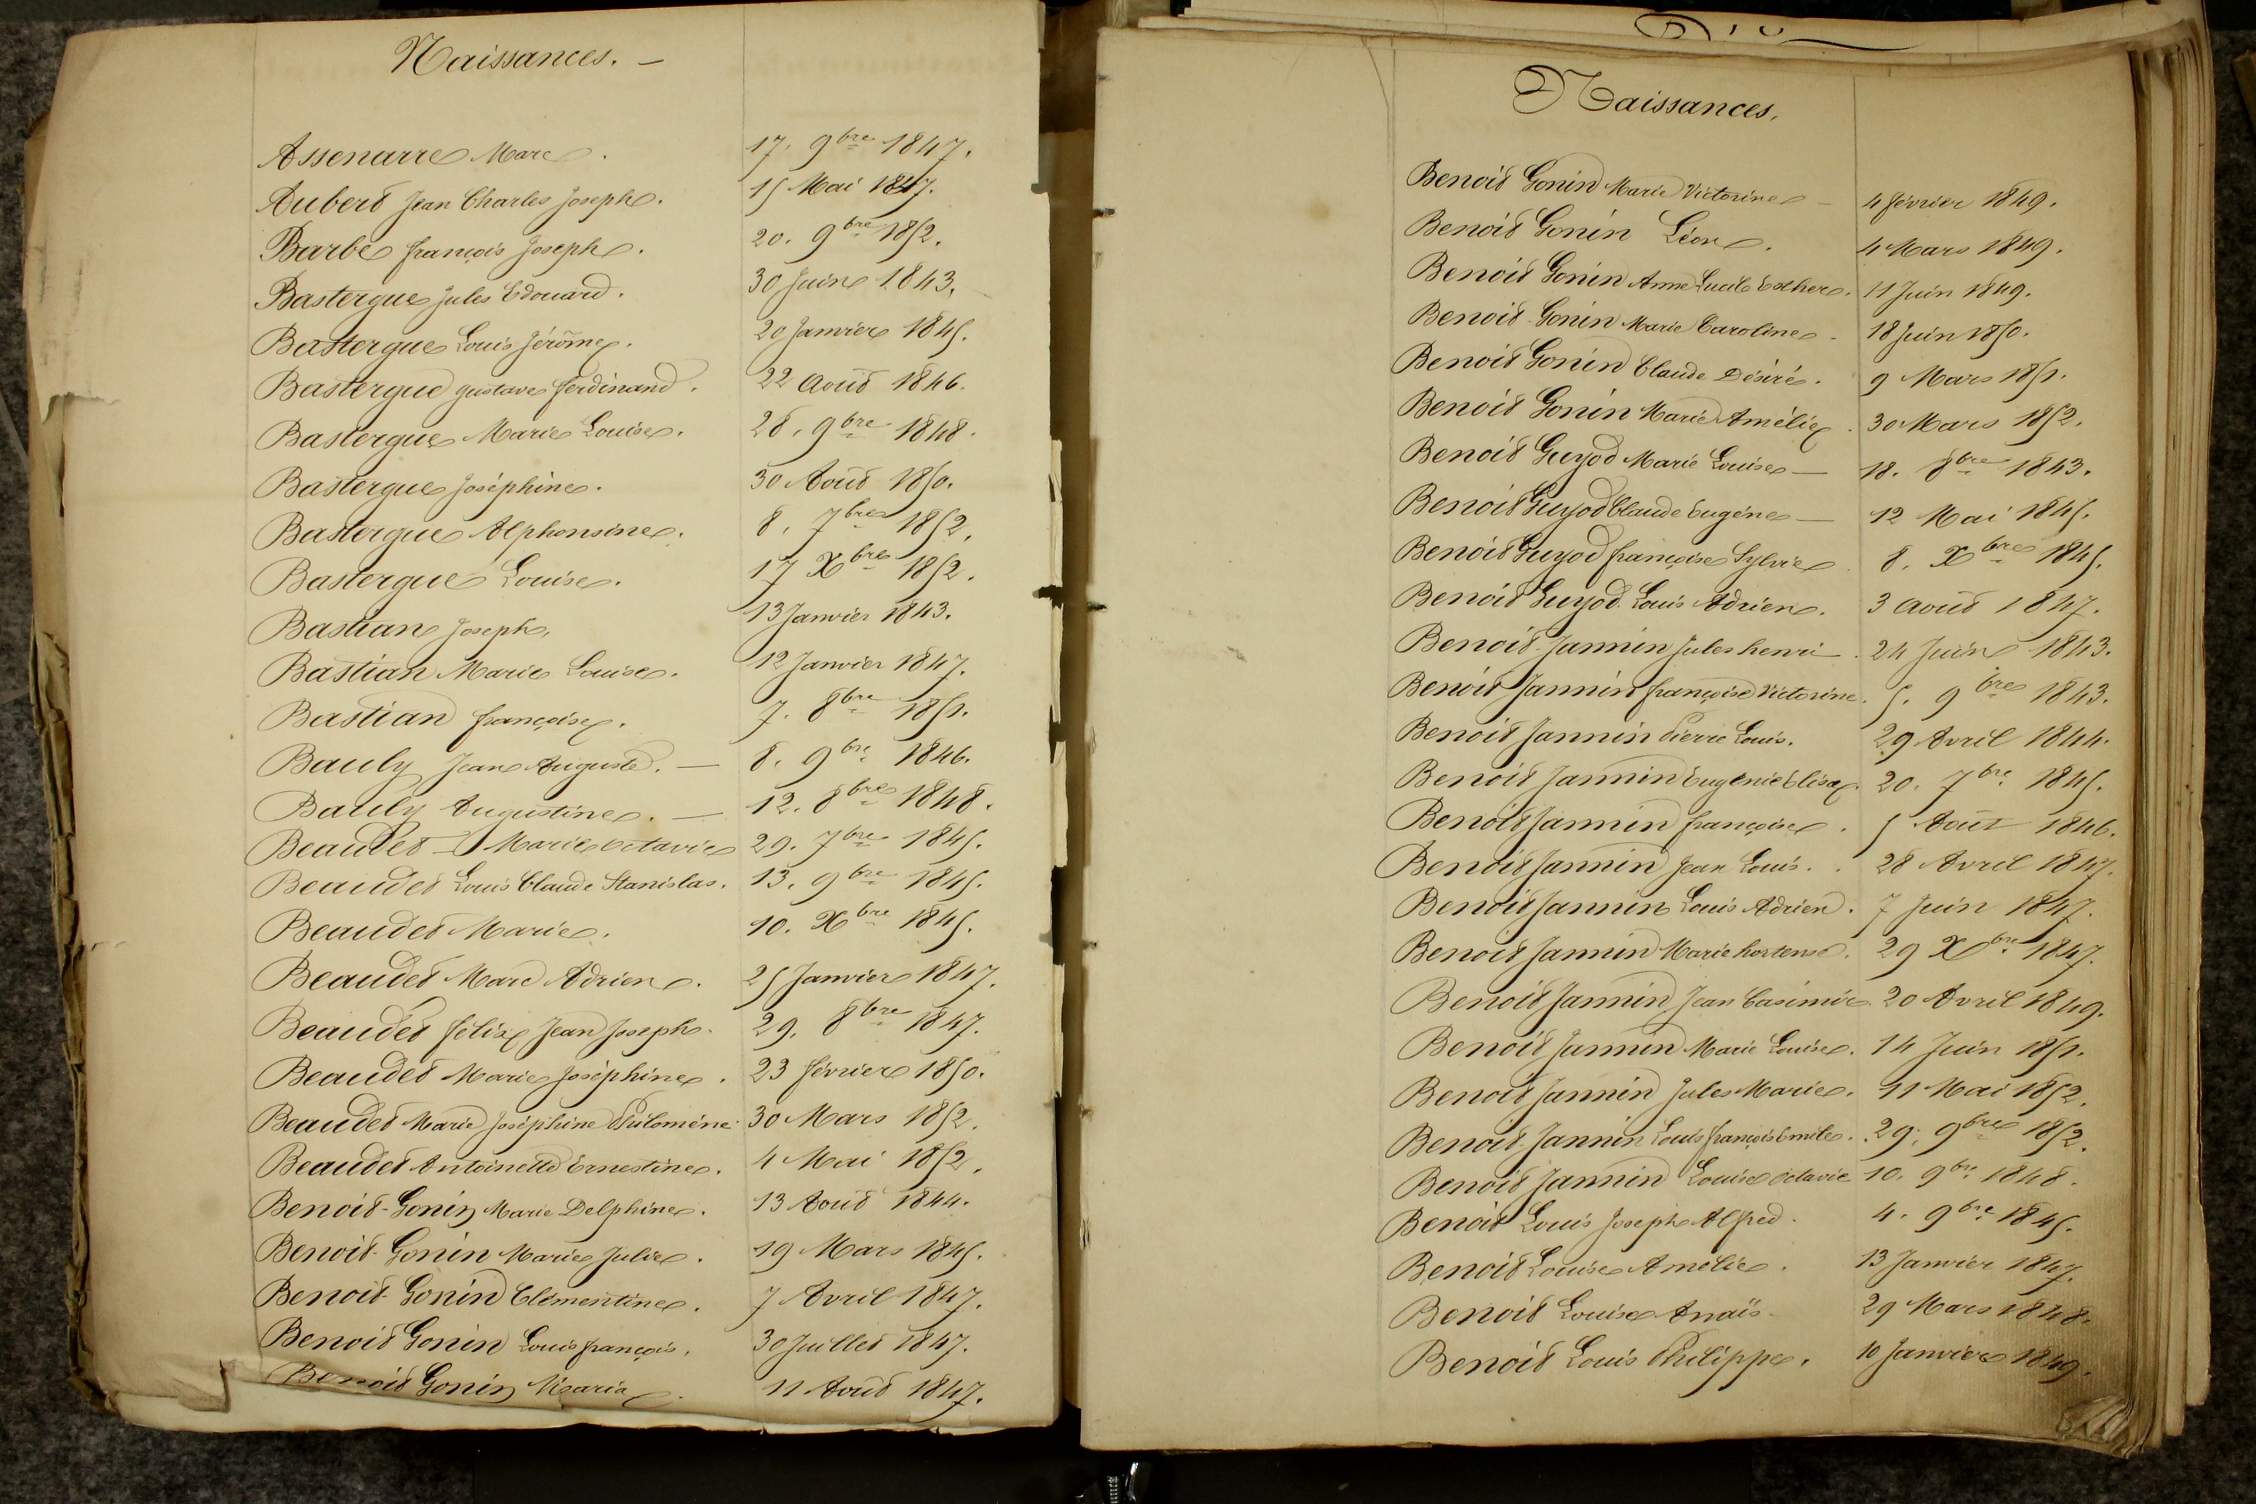 Naissances. —
Assenarre Marc. 17. 9bre 1847.
Aubert Jean Charles Joseph. 15 Mai 1847.
Barbe françois Joseph. 20. 9bre 1852.
Bastergue Jules Edouard. 30 Juin 1843.
Bastergue Louis Jérôme. 20 Janvier 1845.
Bastergue gustave ferdinand. 22 Août 1846.
Bastergue Marie Louise. 28. 9bre 1848.
Bastergue Joséphine. 30 Août 1850.
Bastergue Alphonsine. 8. 7bre 1852.
Bastergue Louise. 17 Xbre 1852.
Bastian Joseph. 13 Janvier 1843.
Bastian Marie Louise. 12 Janvier 1847.
Bastian françoise. 7. 8bre 1851.
Bauly Jean Auguste. — 8. 9bre 1846.
Bauly Augustine. — 12. 8bre 1848.
Beaudet Marie Octavie 29. 7bre 1845.
Beaudet Louis Claude Stanislas. 13. 9bre 1845.
Beaudet Marie. 10. Xbre 1845.
Beaudet Marc Adrien. 25 Janvier 1847.
Beaudet félix Jean Joseph. 29. 8bre 1847.
Beaudet Marie Joséphine. 23 février 1850.
Beaudet Marie Joséphine Philomène 30 Mars 1852.
Beaudet Antoinette Ernestine. 4 Mai 1852.
Benoit-Gonin Marie Delphine. 13 Août 1844.
Benoit-Gonin Marie Julie. 19 Mars 1845.
Benoit-Gonin Clémentine. 7 Avril 1847.
Benoit Gonin Louis françois. 30 Juillet 1847.
Benoit Gonin Maria. 11 Août 1847.
Naissances.
Benoit Gonin Marie Victorine — 4 février 1849.
Benoit Gonin Léon. 4 Mars 1849.
Benoit Gonin Anne Lucile Esther. 11 Juin 1849.
Benoit-Gonin Marie Caroline. 18 Juin 1850.
Benoit Gonin Claude Désiré. 9 Mars 1851.
Benoit Gonin Marie Amélie. 30 Mars 1852.
Benoit Guyod Marie Louise — 18. 8bre 1843.
Benoit Guyod Claude Eugène — 12 Mai 1845.
Benoit Guyod françoise Sylvie 8. Xbre 1845.
Benoit Guyod Louis Adrien. 3 Août 1847.
Benoit-Jannin Jules henri. 24 Juin 1843.
Benoit Jannin françoise Victorine. 5. 9bre 1843.
Benoit Jannin Pierre Louis. 29 Avril 1844.
Benoit Jannin Eugénie Elisa. 20. 7bre 1845.
Benoit Jannin françoise. 5 Août 1846.
Benoit Jannin Jean Louis. 28 Avril 1847.
Benoit Jannin Louis Adrien. 7 Juin 1847.
Benoit Jannin Marie hortense. 29 Xbre 1847.
Benoit Jannin Jean Casimir 20 Avril 1849.
Benoit Jannin Marie Louise. 14 Juin 1851.
Benoit Jannin Jules Marie. 11 Mai 1852.
Benoit-Jannin Louis françois Emile. 29. 9bre 1852.
Benoit Jannin Louise Octavie 10. 9bre 1848.
Benoit Louis Joseph Alfred. 4. 9bre 1845.
Benoit Louise Amélie. 13 Janvier 1847.
Benoit Louise Anaïs. 29 Mars 1848.
Benoit Louis Philippe. 10 Janvier 1849.